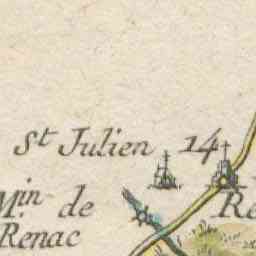 St Julien 14
Min de
Renac
Re